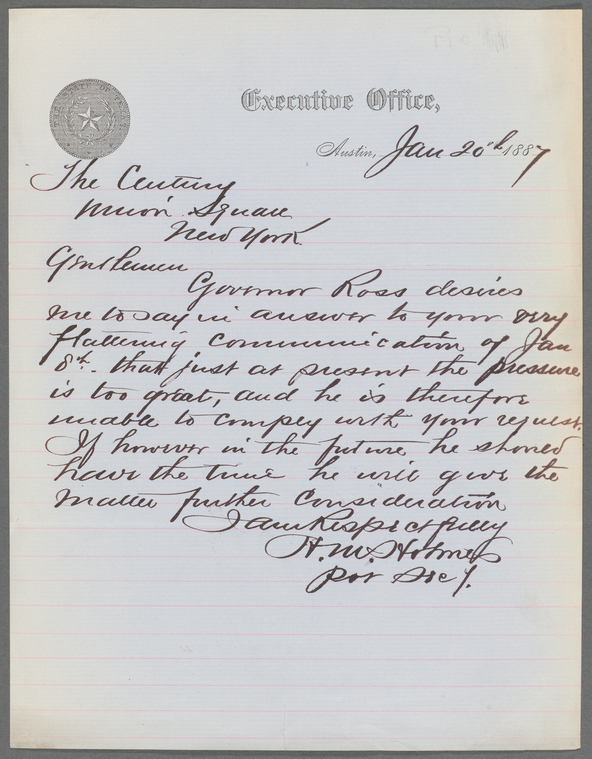 THE STATE OF TEXAS
Executive Office,
Austin, Jan 20th 1887
The Century
Union Square
New York
Gentlemen
Governor Ross desires
me to say in answer to your very
flattering communication of Jan
8th. that just at present the pressure
is too great, and he is therefore
unable to comply with your request.
If however in the future he should
have the time he will give the
matter further consideration
I am Respectfully
H. M. Holmes
Secy.